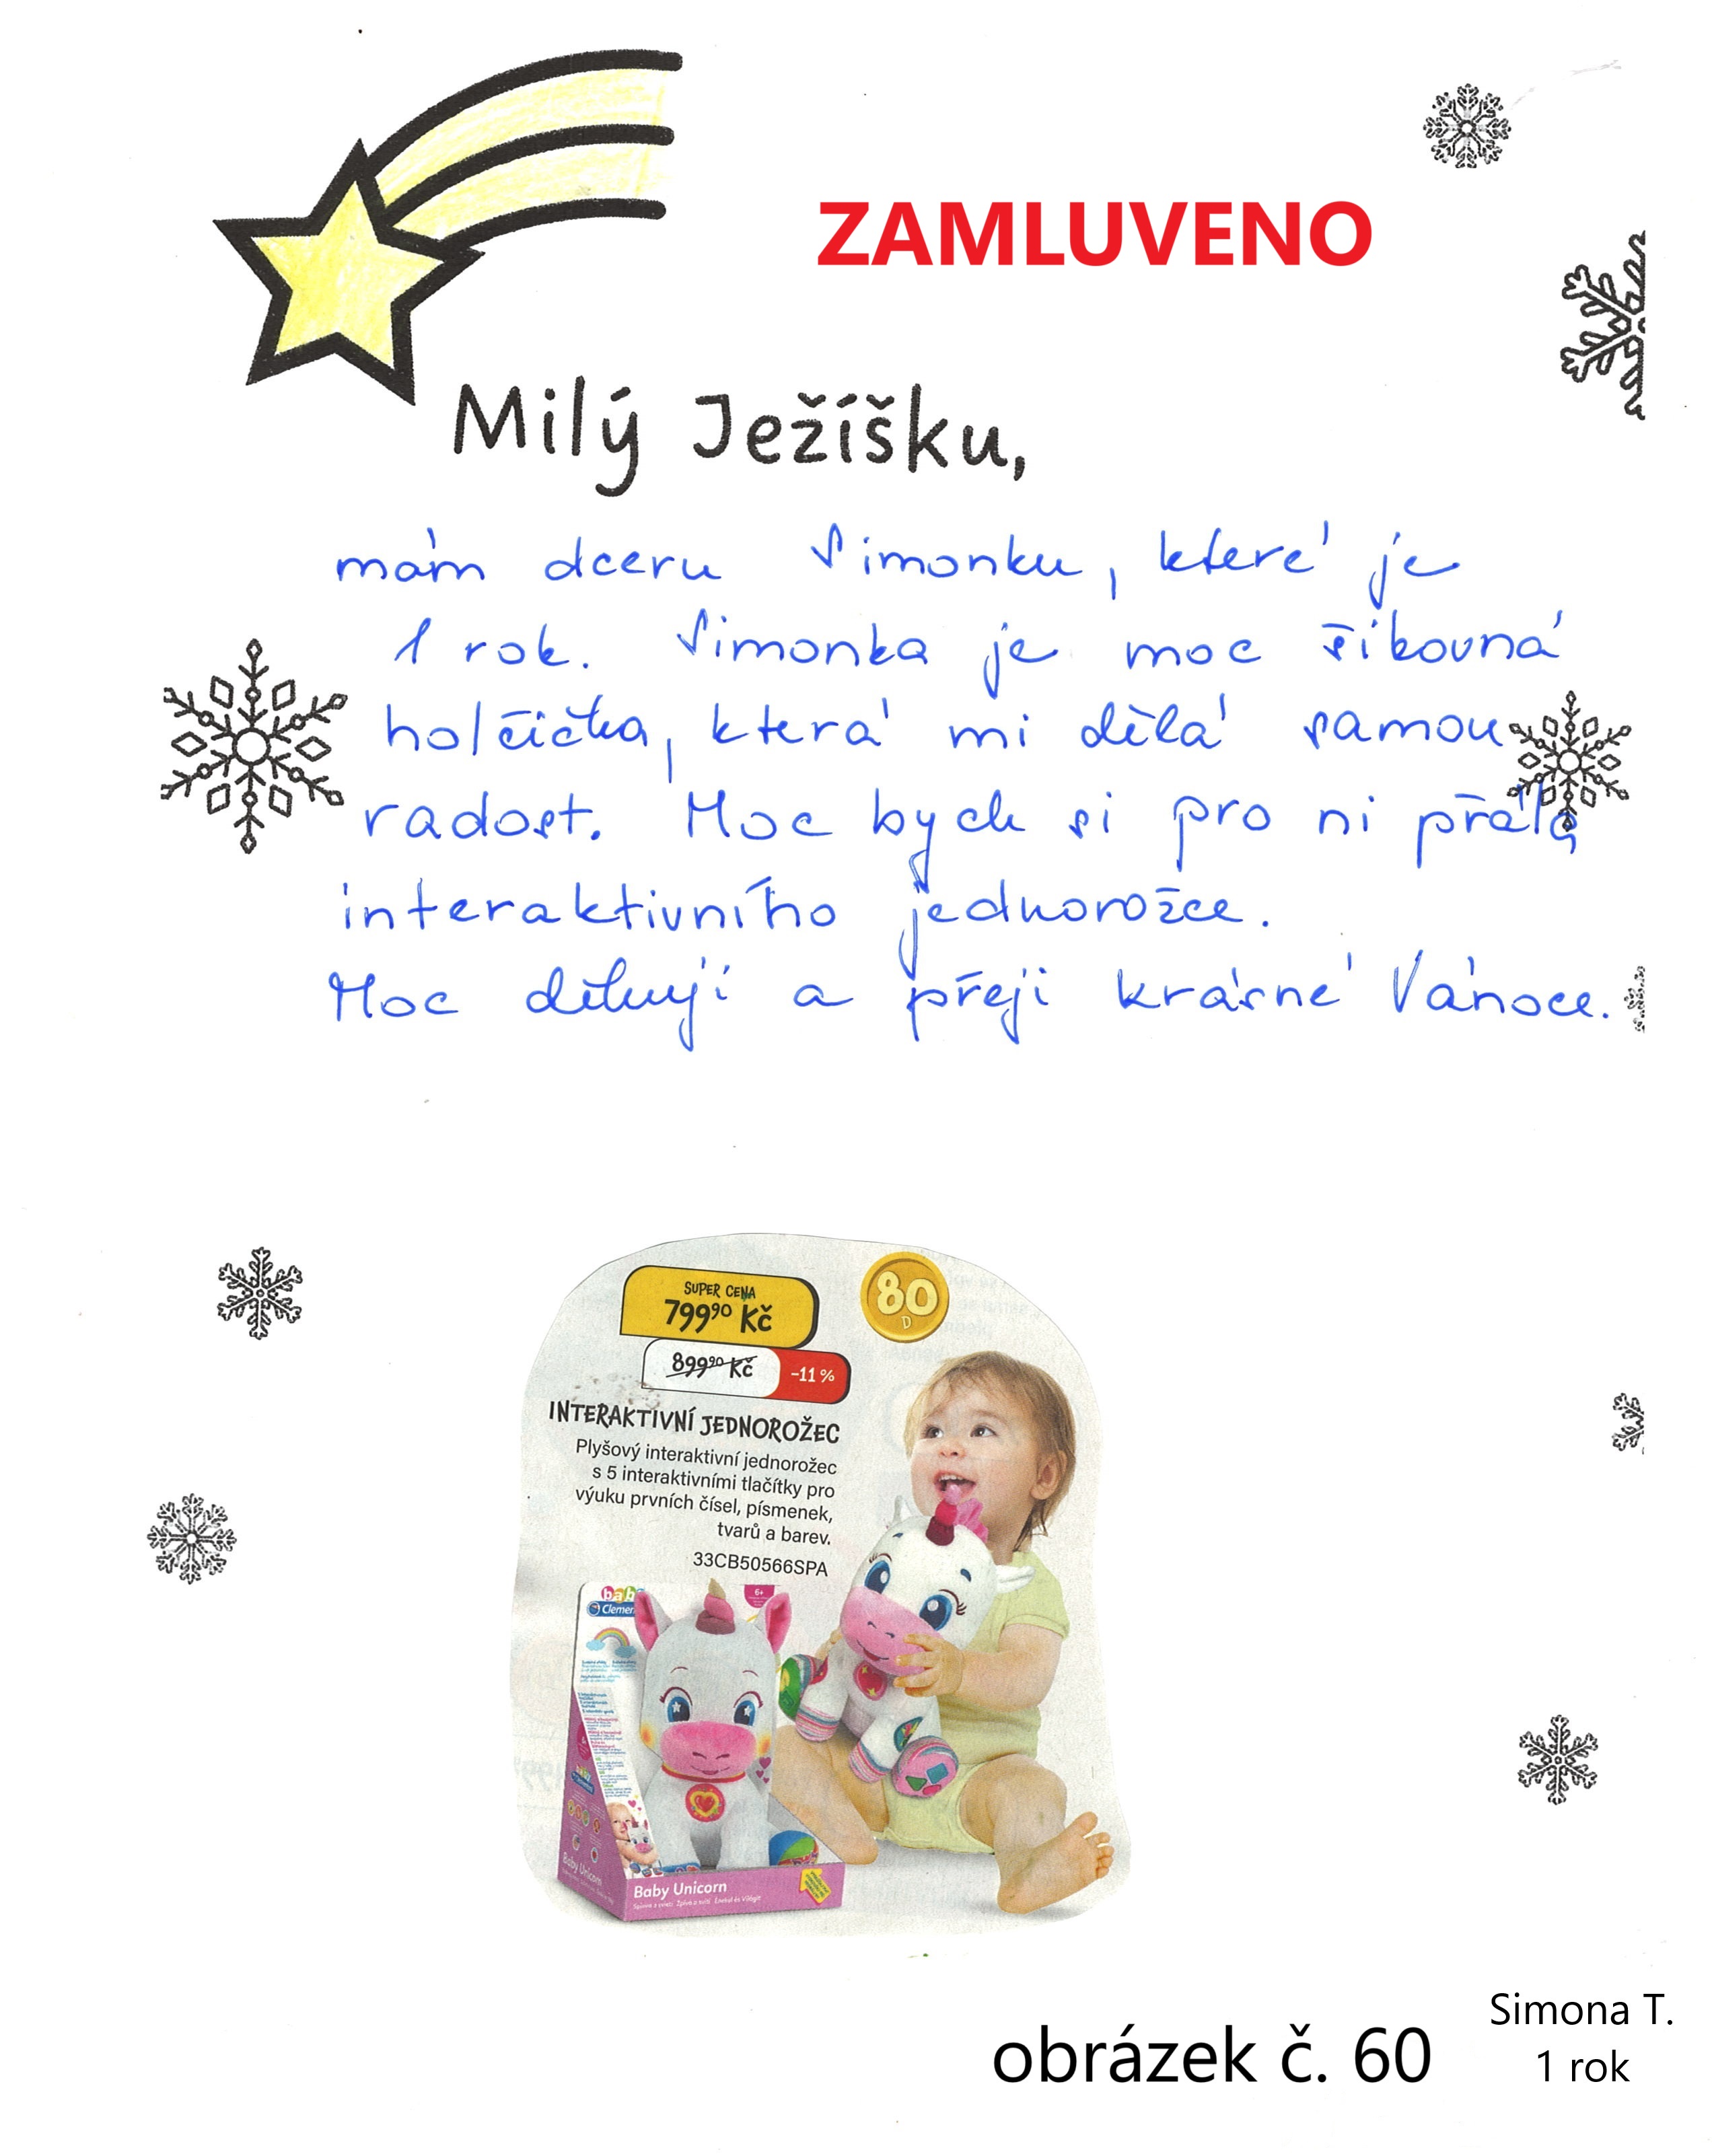 ZAMLUVENO
Milý Ježíšku,
mám dceru Simonku, které je
1 rok. Simonka je moc šikovná
holčička, která mi dělá samou
radost. Moc bych si pro ni přála
interaktivního jednorožce.
Moc děkuji a přeji krásné Vánoce.
SUPER CENA
799⁹⁰ Kč
80
D
899⁹⁰ Kč -11 %
INTERAKTIVNÍ JEDNOROŽEC
Plyšový interaktivní jednorožec
s 5 interaktivními tlačítky pro
výuku prvních čísel, písmenek,
tvarů a barev.
33CB50566SPA
6+
Baby Unicorn
Baby Unicorn
obrázek č. 60
Simona T.
1 rok